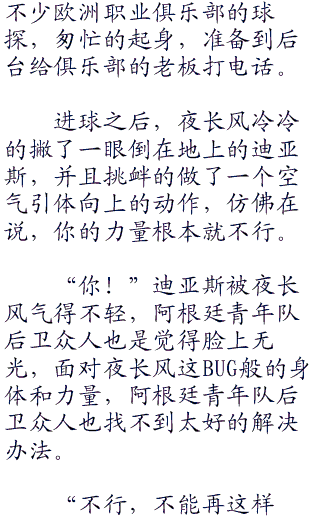 不少欧洲职业俱乐部的球
探，匆忙的起身，准备到后
台给俱乐部的老板打电话。
进球之后，夜长风冷冷
的撇了一眼倒在地上的迪亚
斯，并且挑衅的做了一个空
气引体向上的动作，仿佛在
说，你的力量根本就不行。
“你！”迪亚斯被夜长
风气得不轻，阿根廷青年队
后卫众人也是觉得脸上无
光，面对夜长风这BUG般的身
体和力量，阿根廷青年队后
卫众人也找不到太好的解决
办法。
“不行，不能再这样